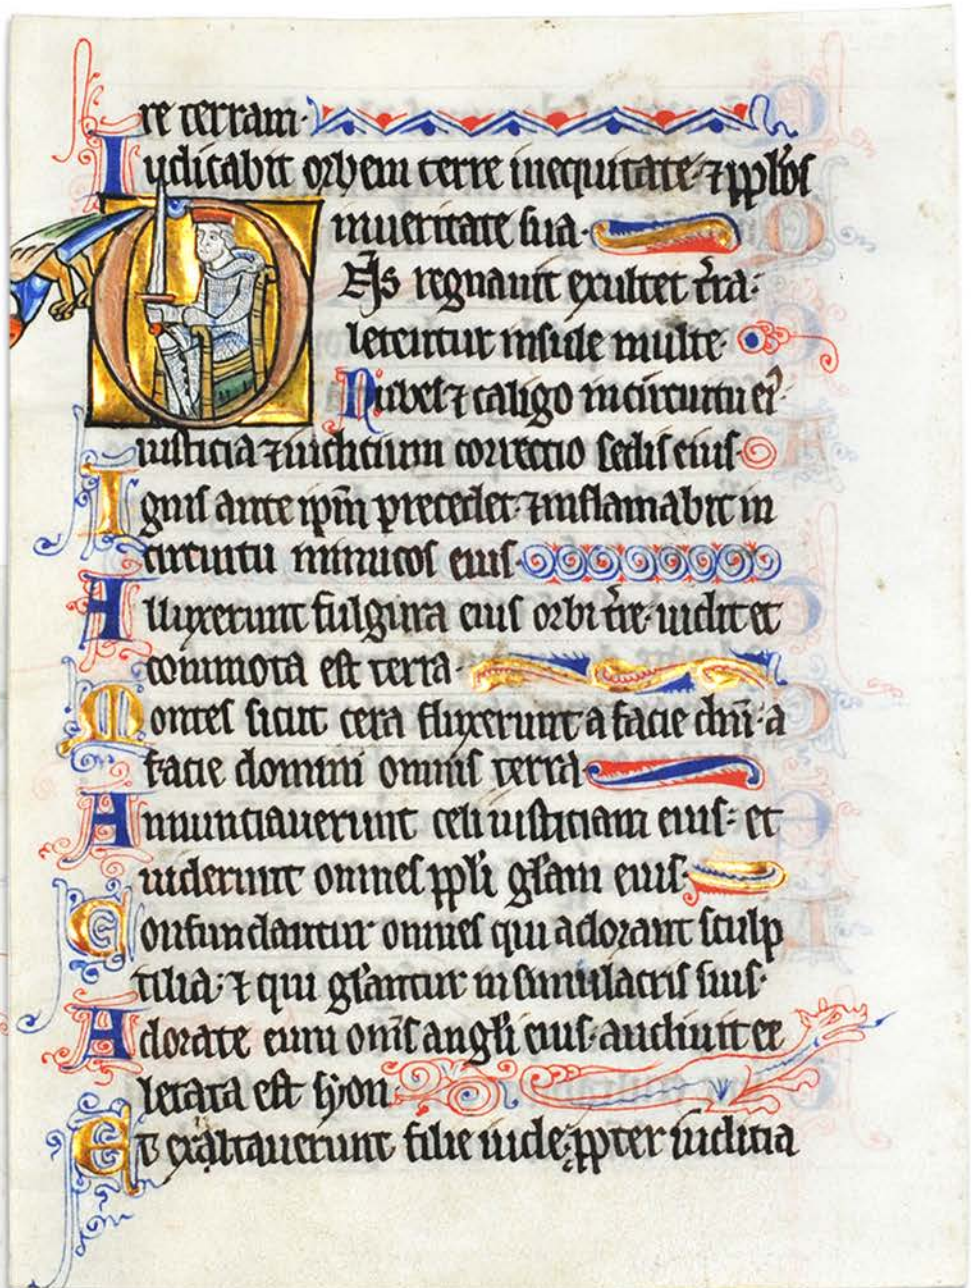 re terram·
Iudicabit orbem terre inequitate· ⁊ pplos
inueritate sua·
Dn̄s regnauit exultet tr̄a:
letentur insule multe·
Nubes ⁊ caligo incircuitu ei'·
iusticia ⁊ iudicium correctio sedis eius·
Ignis ante ipm̄ precedet· ⁊ inflamabit in
circuitu inimicos eius·
Alluxerunt fulgura eius orbi tr̄e· uidit et
commota est terra·
Montes sicut cera fluxerunt a facie dn̄i· a
facie domini omnis terra·
Annunciauerunt celi iusticiam eius: et
uiderunt omnes ppli gl̄am eius·
Confundantur omnes qui adorant sculp
tilia: ⁊ qui gl̄antur in simulacris suis·
Adorate eum om̄s angl̄i eius· audiuit et
letata est syon·
Et exaltauerunt filie iude; ppter iudicia